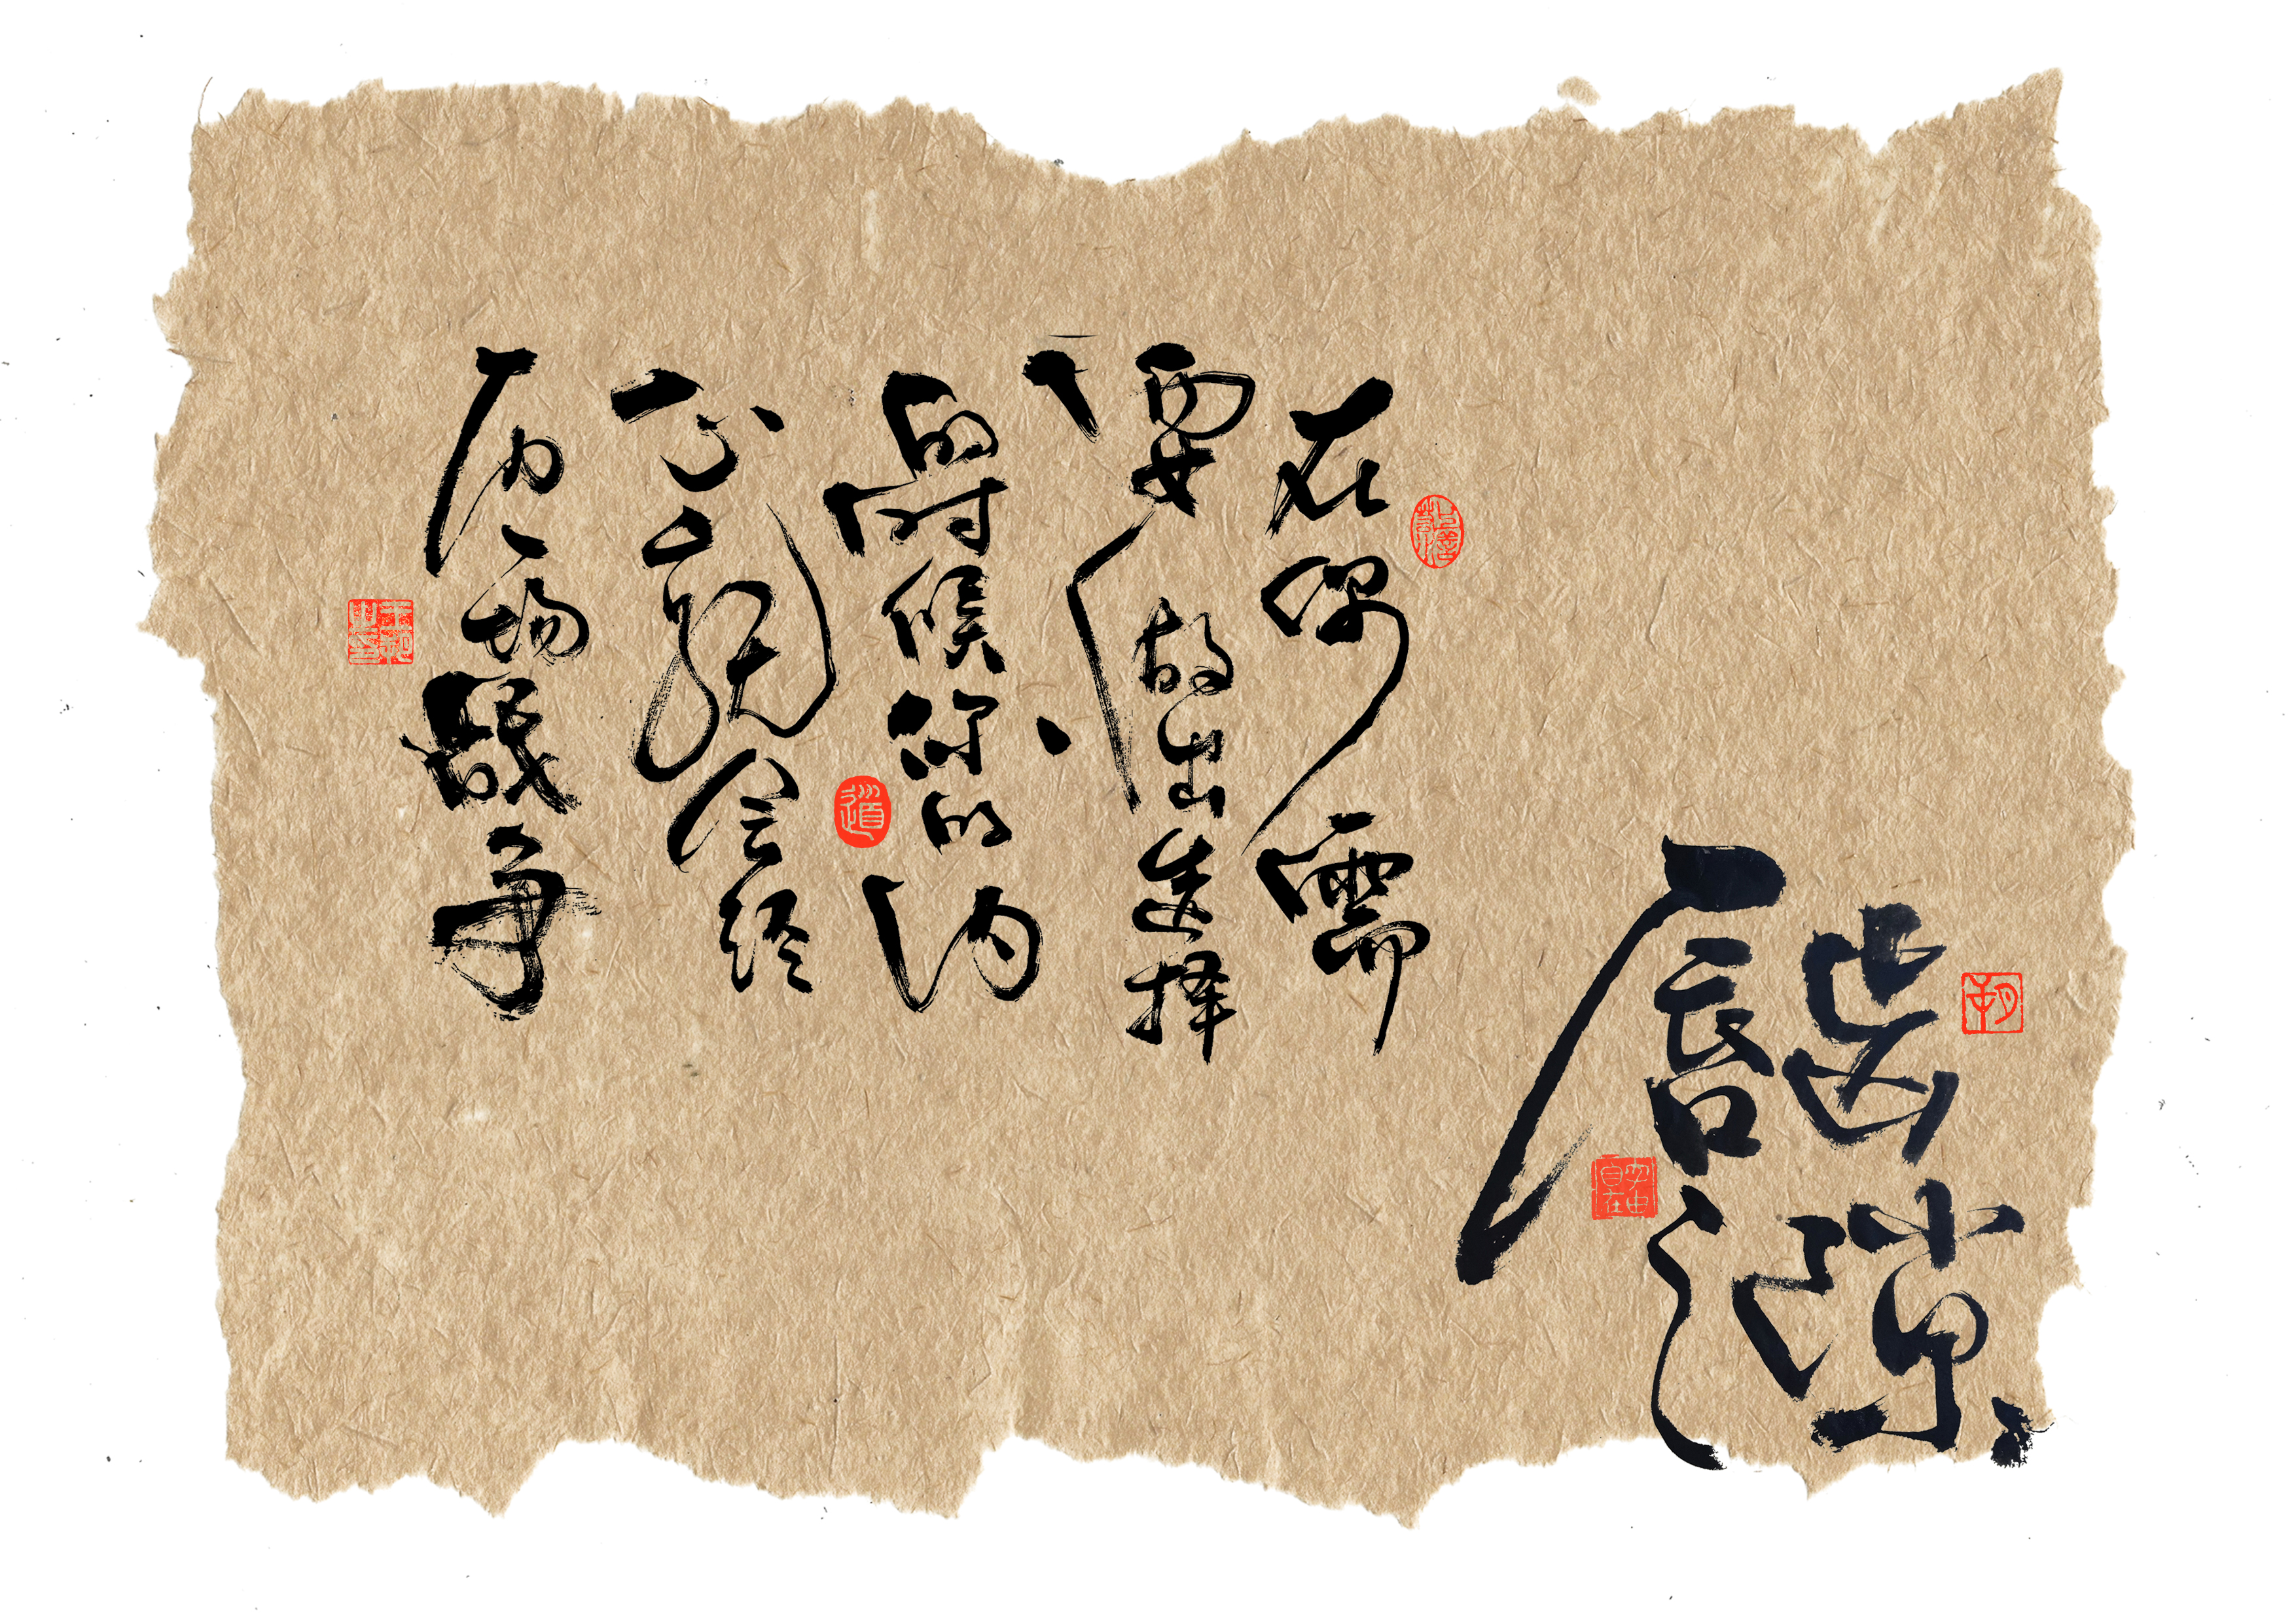 唇齿
之隙
在你需
要做出选择
的时候你的内
心会经
历一场战争
道